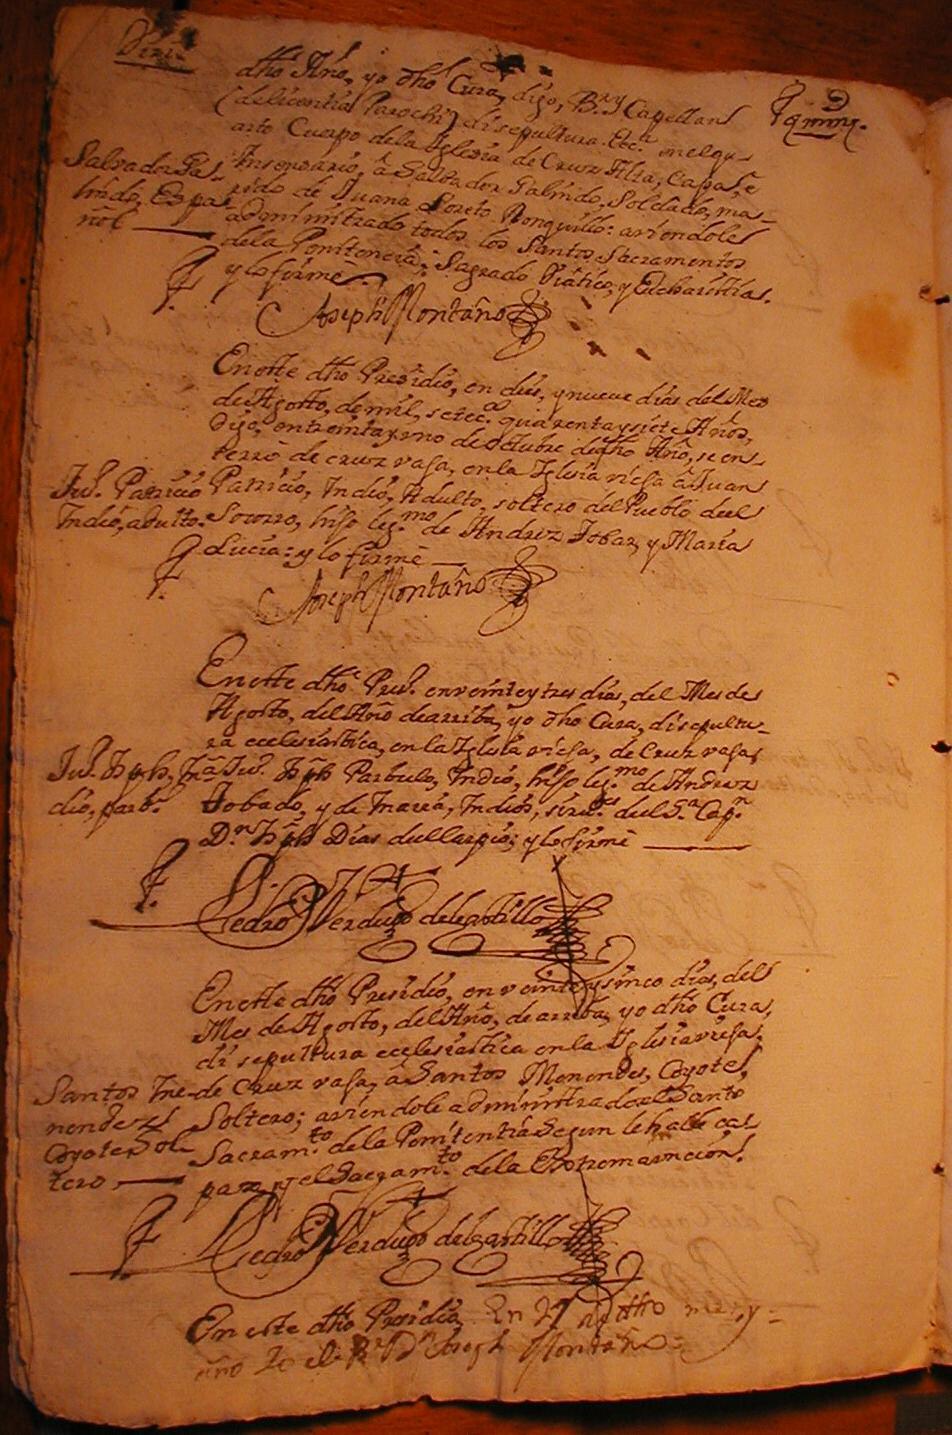 dho Año, yo dho Cura, digo, Br. y Capellan
(de licentia Parochi) di sepultura Ecca. en el qu-
arto Cuerpo de la Iglesia de Cruz Alta, Capa, e
Salvador Ga-
lindo, Espa-
ñol
Insensario, â Salvador Galindo, Soldado, ma-
rido de Juana Loreto Ronquillo: aviendole
administrado todos los Santos Sacramentos
de la Penitencia, Sagrado Viatico, y Eucharistias.
y lo firmè.
Joseph Montaño
En este dho Presidio, en dies, y nueve dias del Mes
de Agosto, de mil, setecos. quarenta y siete Años,
Digo, en treinta y uno de Octubre de dho Año, se en-
terrò de cruz vaja, en la Iglesia vieja â Juan
Jun. Patricio
Indio, adulto.
Patricio, Indio, Adulto, soltero del Pueblo del
Socorro, hijo legmo. de Andrez Tobar, y Maria
Lucia: y lo firmè
Joseph Montaño
En este dho Pres. en veinte y tres dias, del Mes de
Agosto, del Año de arriba, yo dho Cura, di sepultu-
ra ecclesiastica, en la Iglesia vieja, de Cruz vaja,
Jun. Jph, In-
dio, parbo.
â Jun. Jph Parbulo, Indio, hijo legmo. de Andrez
Tobado, y de Maria, Indios, sirvtes. del Sr. Capn.
Dn. Jph Dias del Carpio; y lo firmè
Pedro Verdugo del Castillo
En este dho Presidio, en veinte y sinco dias, del
Mes de Agosto, del Año, de arriba, yo dho Cura,
di sepultura ecclesiastica en la Iglesia vieja,
Santos Me-
nendes
Coyote Sol-
tero
de Cruz vaja, â Santos Menendes, Coyote,
Soltero; aviendole administrado el Santo
Sacramto. de la Penitentia segun le halle ca-
paz, y el Sacramto. de la Extremauncion.
Pedro Verdugo del Castillo
En este dho Presidio, En 27 de dho mes, y
año Jo el Br. Dn. Joseph Montaño